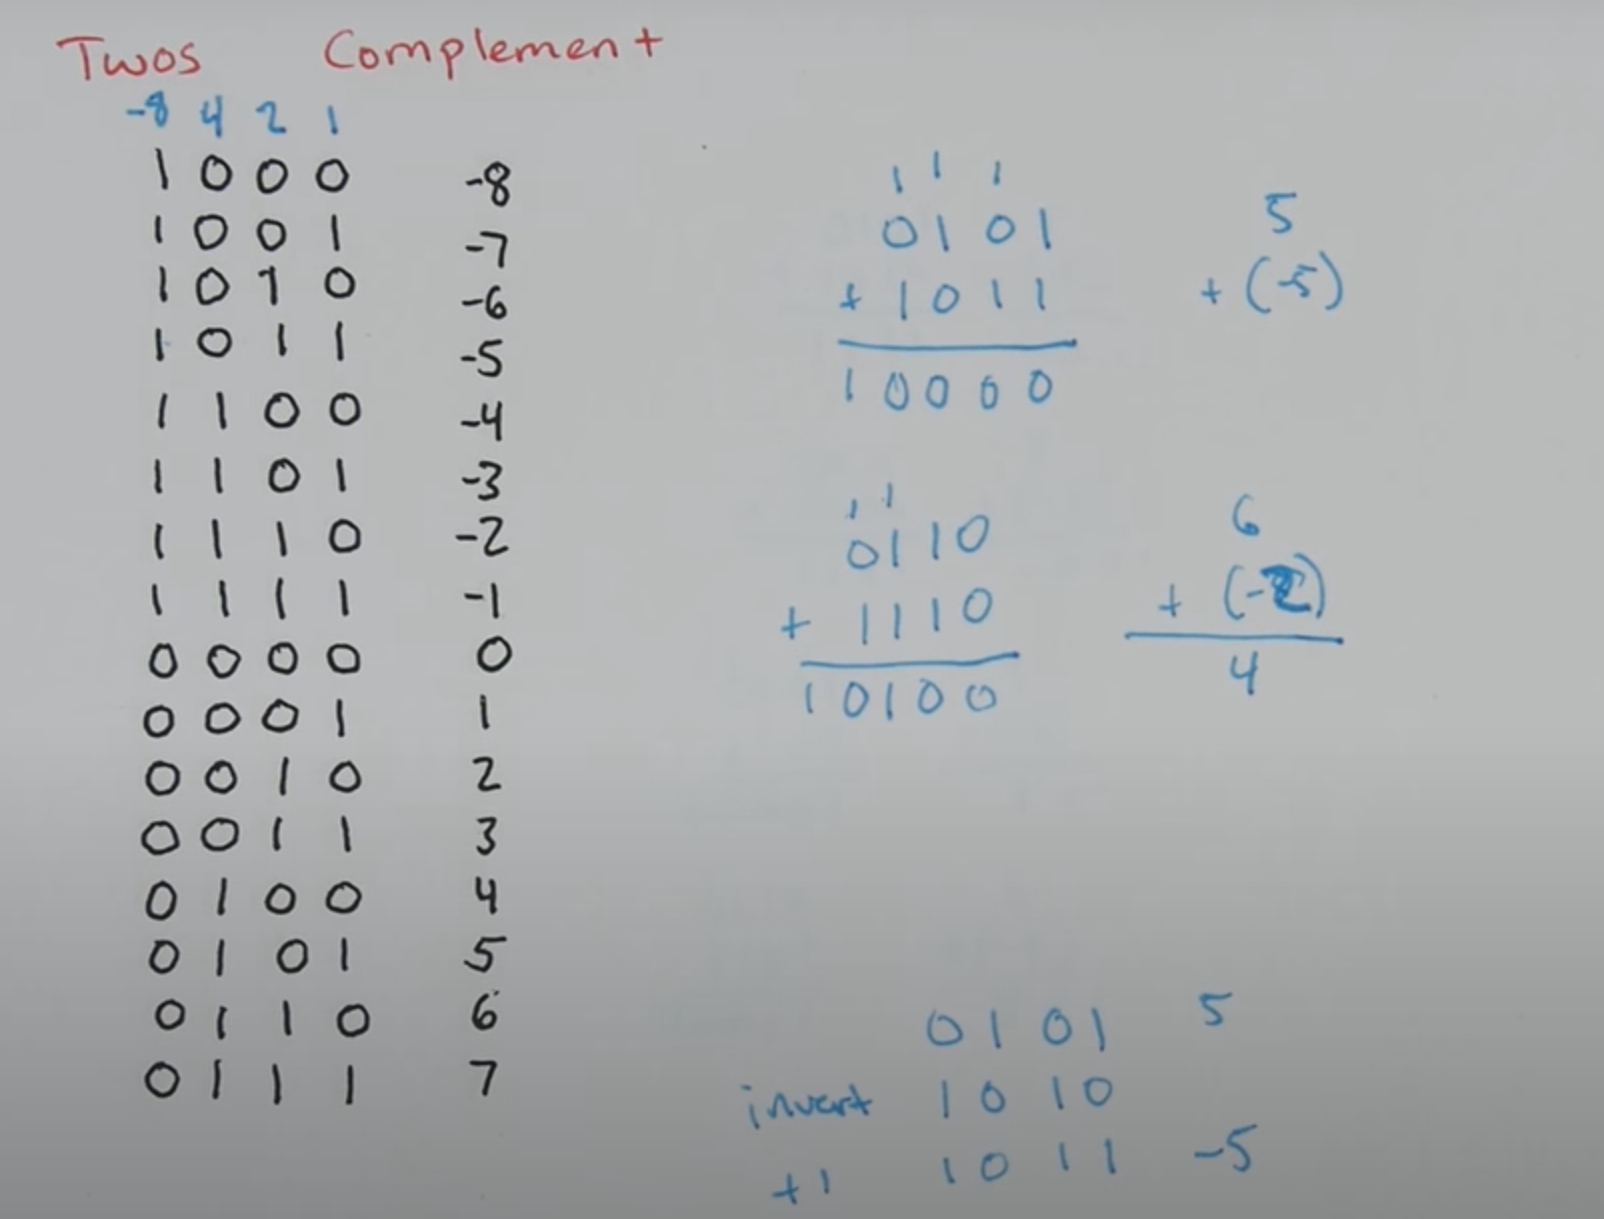 Twos Complement
-8 4 2 1
1 0 0 0 -8
1 0 0 1 -7
1 0 1 0 -6
1 0 1 1 -5
1 1 0 0 -4
1 1 0 1 -3
1 1 1 0 -2
1 1 1 1 -1
0 0 0 0 0
0 0 0 1 1
0 0 1 0 2
0 0 1 1 3
0 1 0 0 4
0 1 0 1 5
0 1 1 0 6
0 1 1 1 7
1 1 1
0101 5
+ 1011 + (-5)
10000
1 1
0110 6
+ 1110 + (-2)
10100 4
0101 5
invert 1010
+1 1011 -5